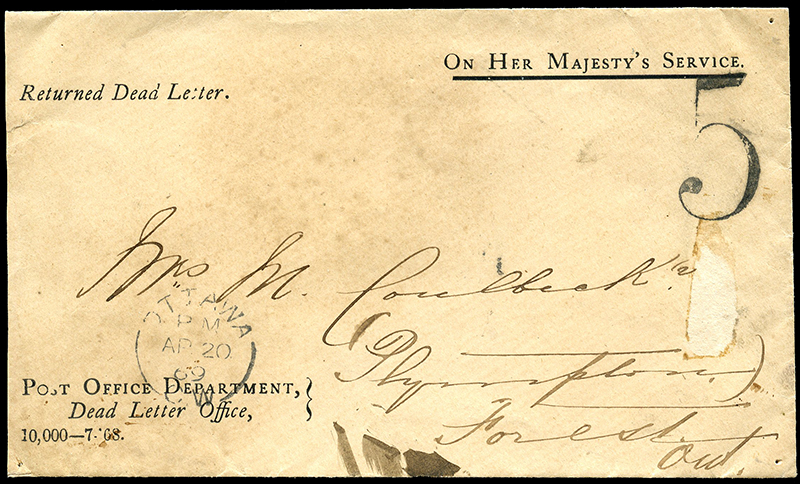 ON HER MAJESTY'S SERVICE.
Returned Dead Letter.
5
Mrs M. Coulbeck
(Plympton)
Forest
Ont.
OTTAWA
PM
AP 20
69
C.W
POST OFFICE DEPARTMENT,
Dead Letter Office,
10,000—7-'68.